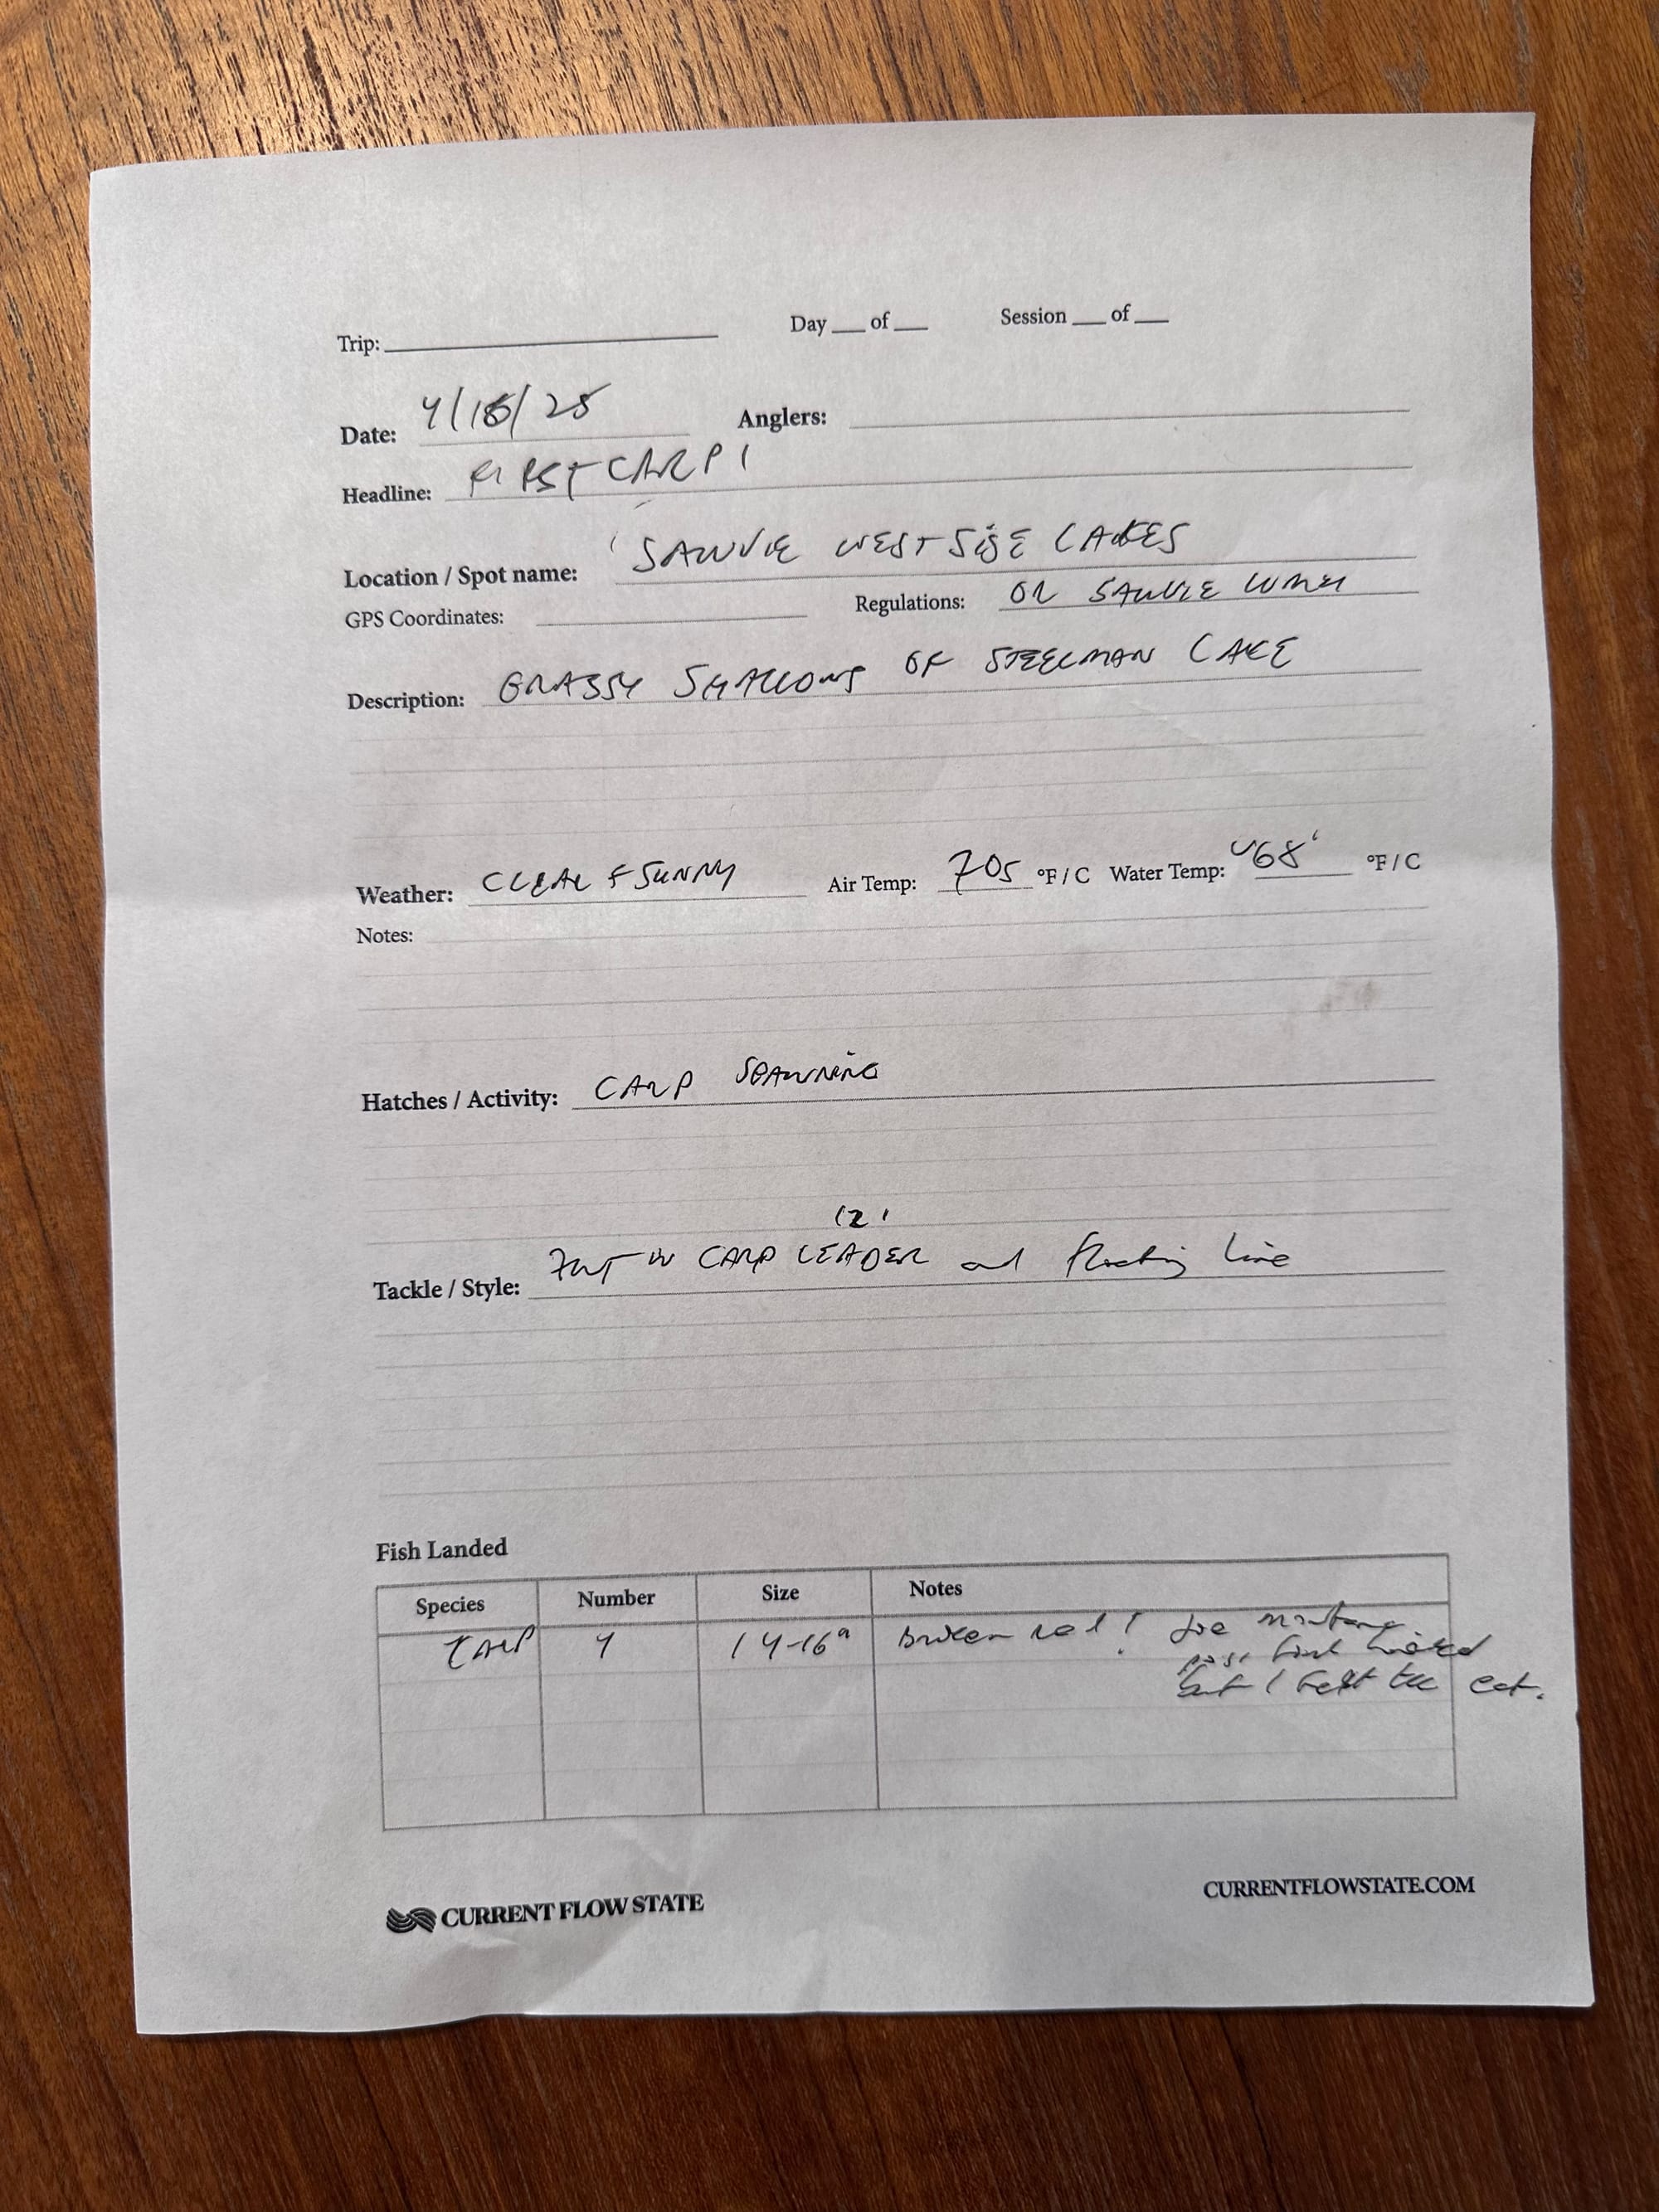 Trip: Day of Session of
Date: 4/18/25 Anglers:
Headline: FIRST CARP!
Location / Spot name: SAUVIE WESTSIDE LAKES
GPS Coordinates: Regulations: OR SAUVIE
Description: GRASSY SHALLOWS OF STEELMAN LAKE
Weather: CLEAR & SUNNY Air Temp: 70s °F/C Water Temp: ~68° °F/C
Notes:
Hatches / Activity: CARP SPAWNING
12'
Tackle / Style: 7WT W CARP LEADER and floating line
Fish Landed
Species Number Size Notes
CARP 4 14-16" broken rod!
but I felt the eat.
CURRENT FLOW STATE
CURRENTFLOWSTATE.COM